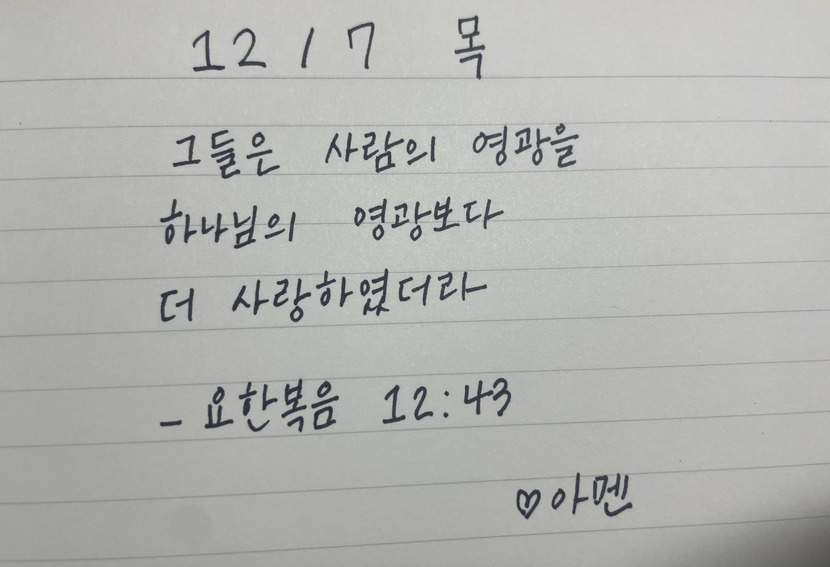 12 / 7 목
그들은 사람의 영광을
하나님의 영광보다
더 사랑하였더라
- 요한복음 12:43
♡아멘